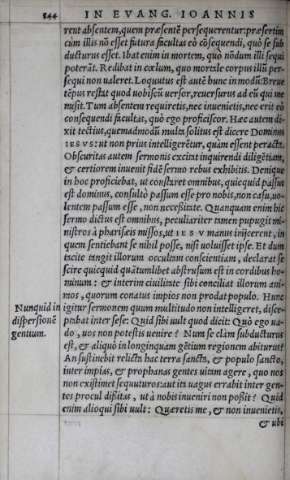 544 IN EVANG. IOANNIS
rent absentem, quem præsentē persequerentur: præsertim
cùm illis nō esset futura facultas eò cōsequendi, quò se sub
ducturus esset. Ibat enim in mortem, quò nōdum illi sequi
poterāt. Redibat in cælum, quò mortale corpus illū per-
sequi non valeret. Loquutus est autē hunc in modū: Breve
tēpus restat quod vobiscū versor, reversurus ad eū qui me
misit. Tum absentem requiretis, nec invenietis, nec erit eò
consequendi facultas, quò ego proficiscor. Hæc autem di-
xit tectius, quemadmodū multa solitus est dicere Dominus
IESVS: ut non prius intelligerētur, quàm essent peracta.
Obscuritas autem sermonis excitat inquirendi diligētiam,
& certiorem invenit fidē sermo rebus exhibitis. Denique
in hoc proficiebat, ut constaret omnibus, quicquid passus
est dominus, consultò passum esse pro nobis, non casu, vo-
lentem passum esse, non necessitate. Quanquam enim hic
sermo dictus est omnibus, peculiariter tamen pupugit mi-
nistros à pharisæis missos, ut IESV manus inijcerent, in
quem sentiebant se nihil posse, nisi voluisset ipse. Et dum
tacitè tangit illorum occultam conscientiam, declarat se
scire quicquid quātumlibet abstrusum est in cordibus ho-
minum: & interim civilitate sibi conciliat illorum ani-
mos, quorum conatus impios non prodat populo. Hunc
Nunquid in igitur sermonem quum multitudo non intelligeret, disce-
dispersionē ptabat inter sese: Quid sibi vult quod dicit: Quò ego va-
gentium. do, vos non potestis venire? Num se clàm subducturus
est, & aliquò in longinquam gētium regionem abiturus?
An sustinebit relicta hac terra sancta, & populo sancto,
inter impias, & prophanas gentes vitam agere, quo nos
non existimet sequuturos: aut ita vagus errabit inter gen-
tes procul dissitas, ut à nobis inveniri non possit? Quid
enim alioqui sibi vult: Quæretis me, & non invenietis,
& ubi